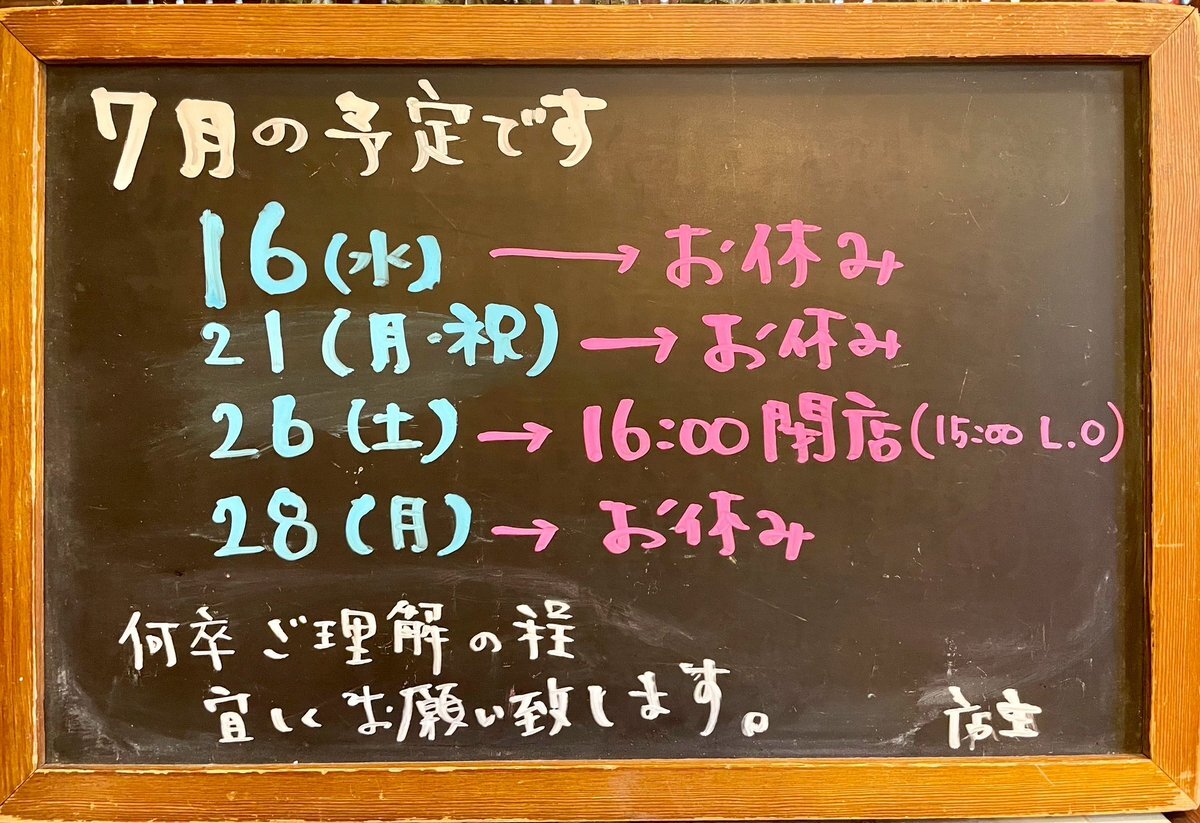 7月の予定です
16(水) → お休み
21(月・祝) → お休み
26(土) → 16:00 閉店(15:00 L.O)
28(月) → お休み
何卒ご理解の程
宜しくお願い致します。
店主